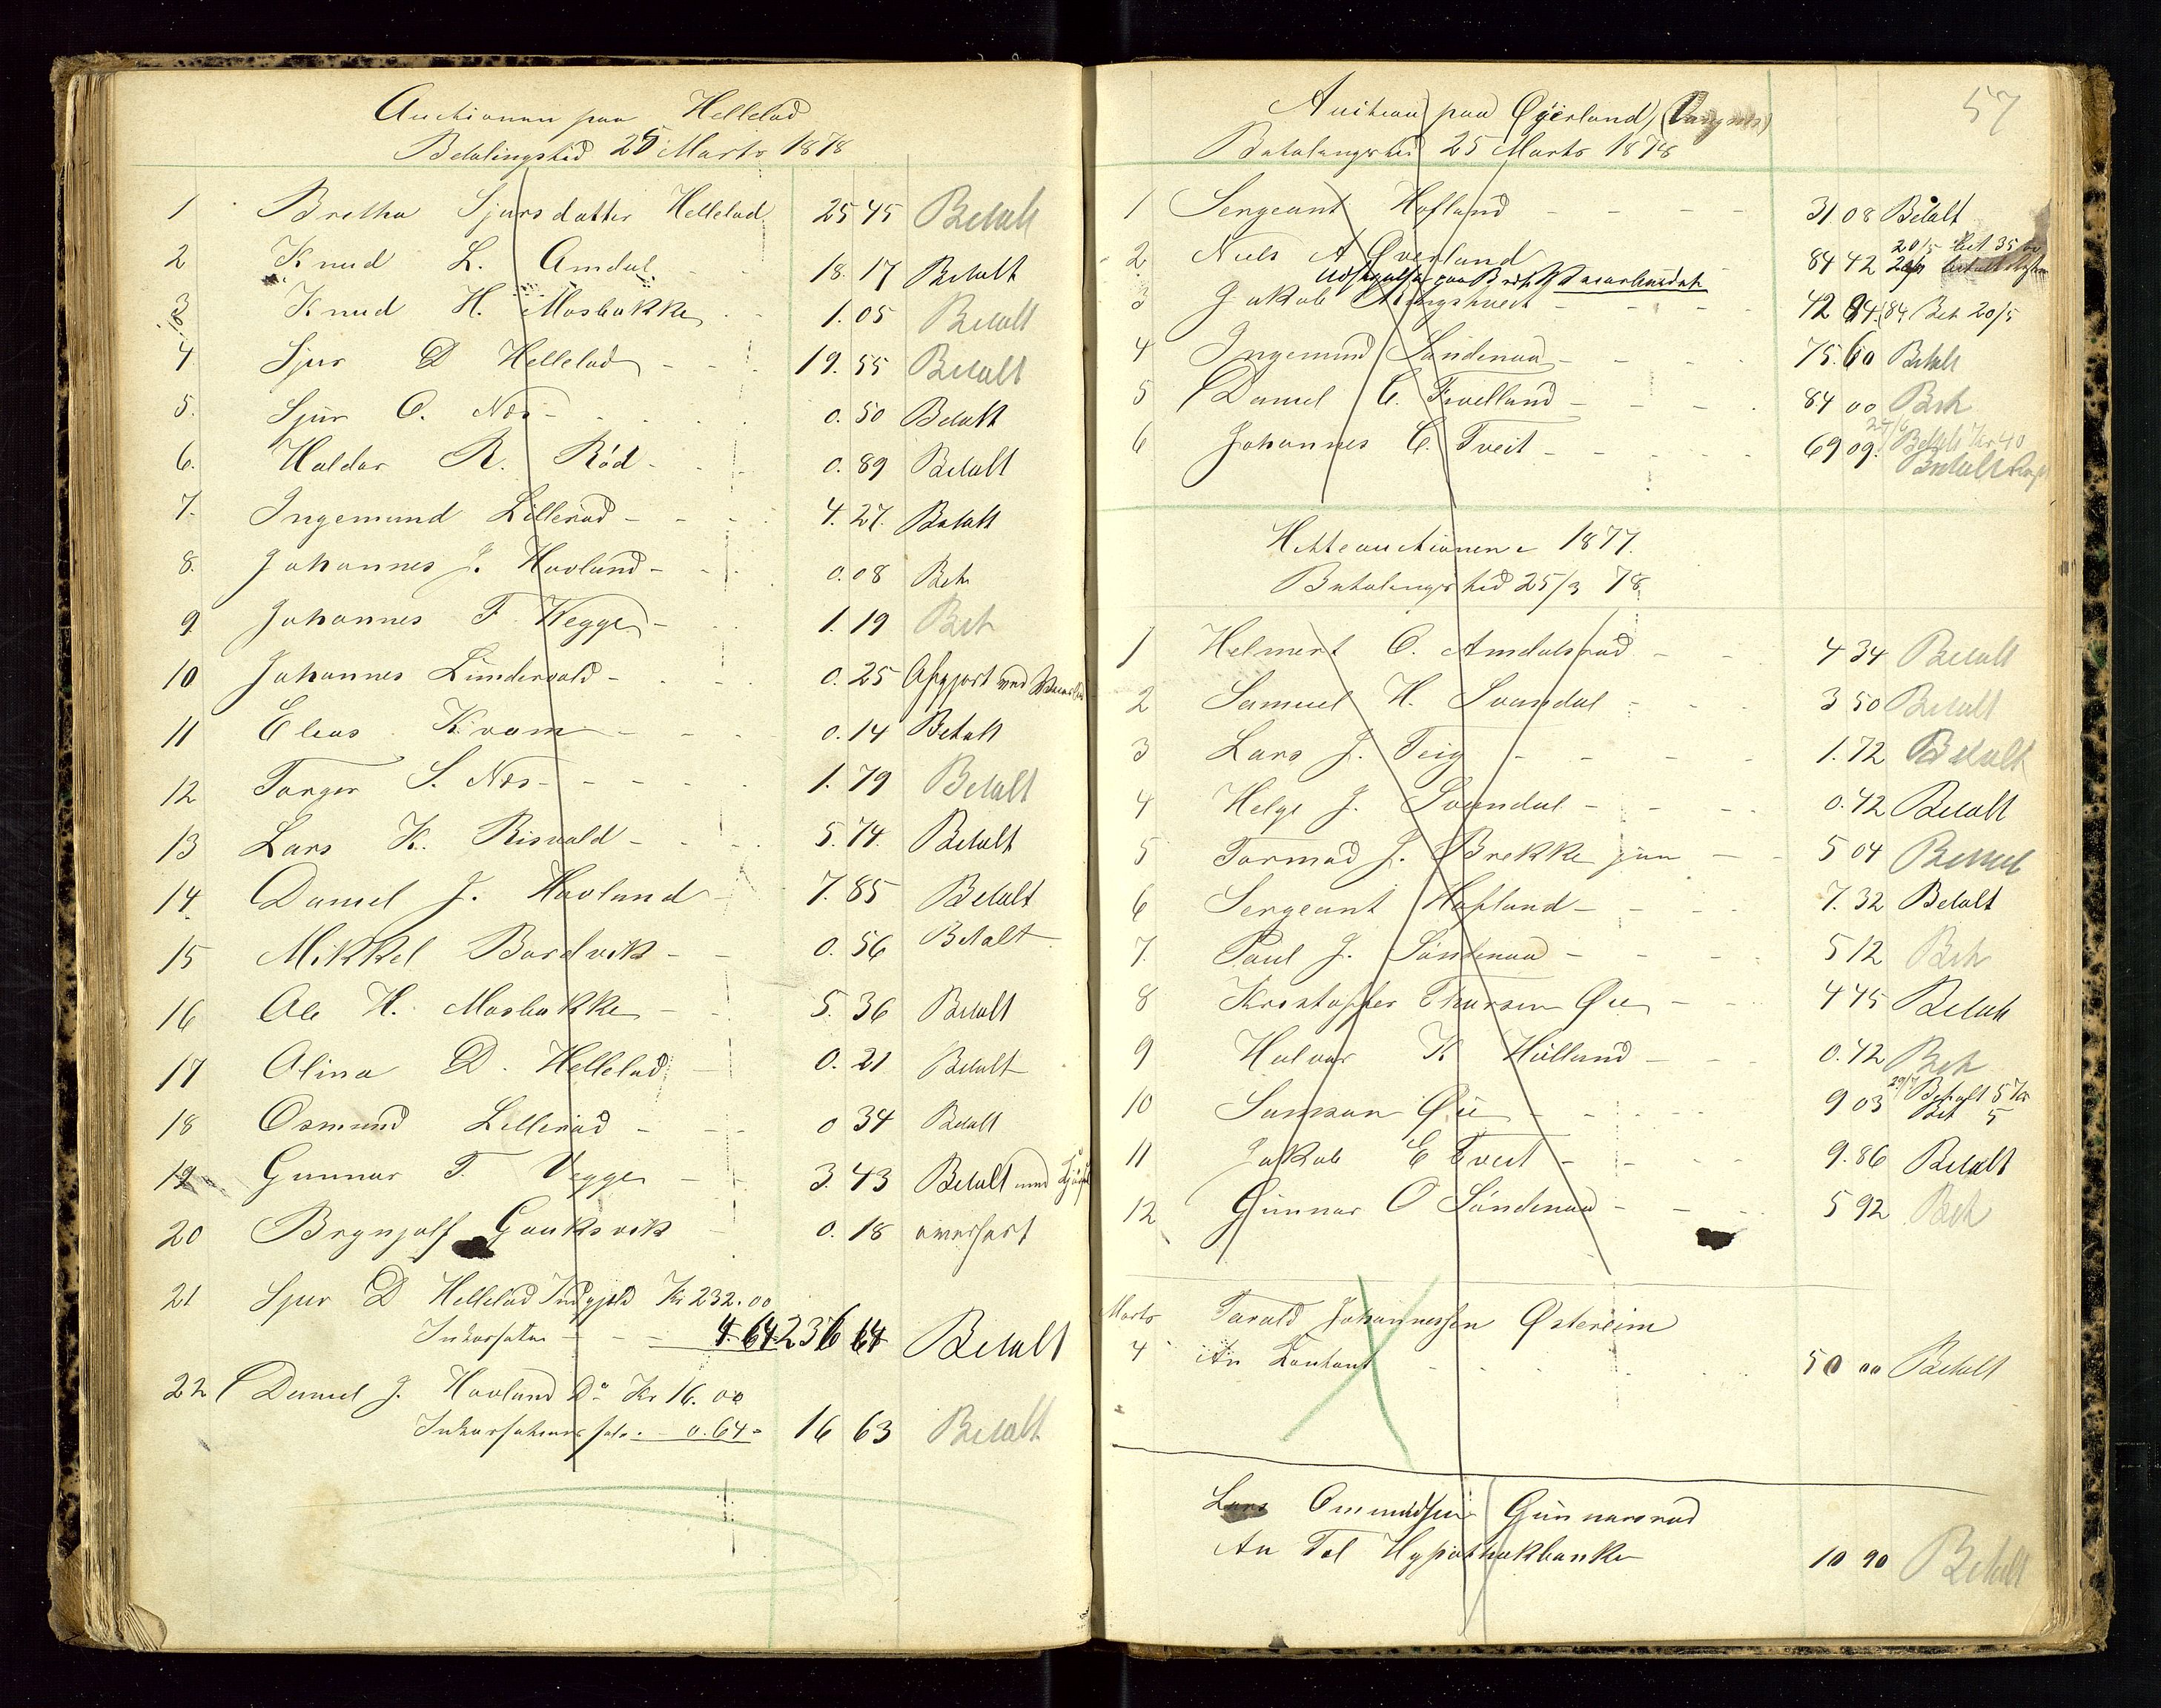 Auctionen paa Helleland
Betalingstid 25 Marts 1878
1 Bretha Sjursdatter Hellelad 25 45 Betalt
2 Knud L. Amdal 18. 17 Betalt
3 Knud H. Mosbakke 1. 05 Betalt
4 Sjur D Hellelad 19. 55 Betalt
5. Sjur O. Næs 0. 50 Betalt
6. Haldor R. Röd 0. 89 Betalt
7. Ingemund Lillerad 4. 27. Betalt
8. Johannes J. Hovland 0. 08 Bet
9. Johannes F Wegge 1. 19 Bet
10 Johannes Lindervold 0. 25 Afgjort med
11 Elias Kvam 0. 14 Betalt
12 Torger S. Næs 1. 79 Betalt
13 Lars K. Risvold 5. 74. Betalt
14. Daniel J. Hovland 7. 85 Betalt
15 Mikkel Bordvik 0. 56 Betalt
16 Ole H. Mosbakke 5. 36 Betalt
17 Olina D. Hellelad 0. 21 Betalt
18 Osmund Lillerad 0 34 Betalt
19 Gunnar T. Vegge 3. 43 Betalt med
20 Brynjolf Gauksvik 0. 18 overført
21 Sjur D Hellelad Indgjeld Kr 232.00
4.64 236 64 Betalt
22 Daniel J. Hovland Do Kr 16.00
0.64 16 63 Betalt
57
Auction paa Øyerland
Betalingstid 25 Marts 1878
1 Sergeant Hofland 31 08 Betalt
2 Niels A Øverland 84 42 20/5 bet 35
3 Jakob 42 84 Bet 20/5
4 Ingemund Søndenaa 75. 60 Betalt
5 Daniel C. Fivelland 84 00 Bet
6 Johannes C. Tveit 69 09. Betalt Kr 40
Betalt
Hesteauctionen 1877.
Betalingstid 25/3 78
1 Helmert O. Amdalsrud 4 34 Betalt
2 Samuel H. Svandal 3 50 Betalt
3 Lars J. Teig 1. 72 Betalt
4 Helge J. Svandal 0. 42 Betalt
5 Tormod J. Brekke jun 5 04 Betalt
6 Sergeant Hofland 7. 32 Betalt
7. Paul J. Søndenaa 5 12 Bet
8 Kristopfer Thorsen Øie 4 45 Betalt
9 Halvor K Hølland 0. 42 Bet
10 Samson Øie 9 03 29/7 Betalt 5 Kr
Bet 5
11 Jakob E Tveit 9. 86 Betalt
12 Gunnar O Søndenaa 5 92 Bet
Marts Tarald Johannessen Østereim
4 An Kontant 50 00 Betalt
Lars Ommundsen Gunnarsrud
An Tel Hypothekbanke 10 90 Betalt